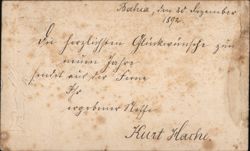 Bahia, den 20 Dezember
1892.
Die herzlichsten Glückwünsche zum
neuen Jahre
sendet aus der Ferne
Ihr
ergebener Neffe
Kurt Hache